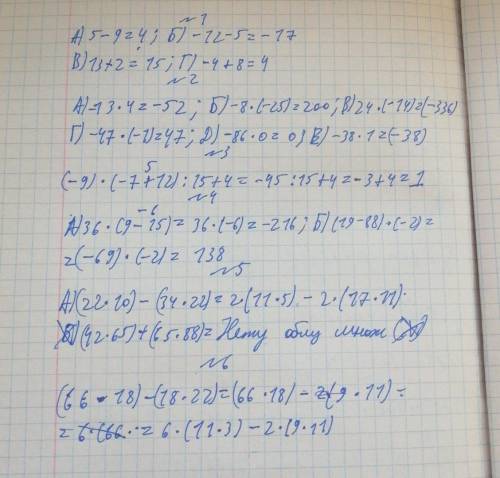 №1
А) 5-9=4; Б) -12-5=-17
В) 13+2=15; Г) -4+8=4
№2
А) -13·4=-52; Б) -8·(-25)=200; В) 24·(-14)=(-336)
Г) -47·(-1)=47; Д) -86·0=0; Е) -38·1=(-38)
№3
5
(-9)·(-7+12):15+4=-45:15+4=-3+4=1
№4
-6
А) 36·(9-15)=36·(-6)=-216; Б) (19-88)·(-2)=
=(-69)·(-2)=138
№5
А) (22·10)-(34·22)=2·(11·5)-2·(17·11).
Б) (42·65)+(65·88)=Нету общ множ
№6
(66·18)-(18·22)=(66·18)-2(9·11)=
=6·(66·=6·(11·3)-2·(9·11)